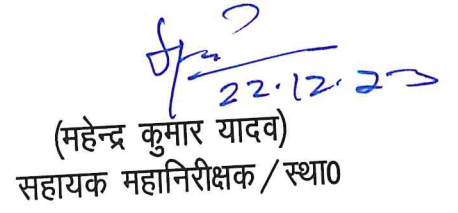 22.12.23
(महेन्द्र कुमार यादव)
सहायक महानिरीक्षक / स्था0